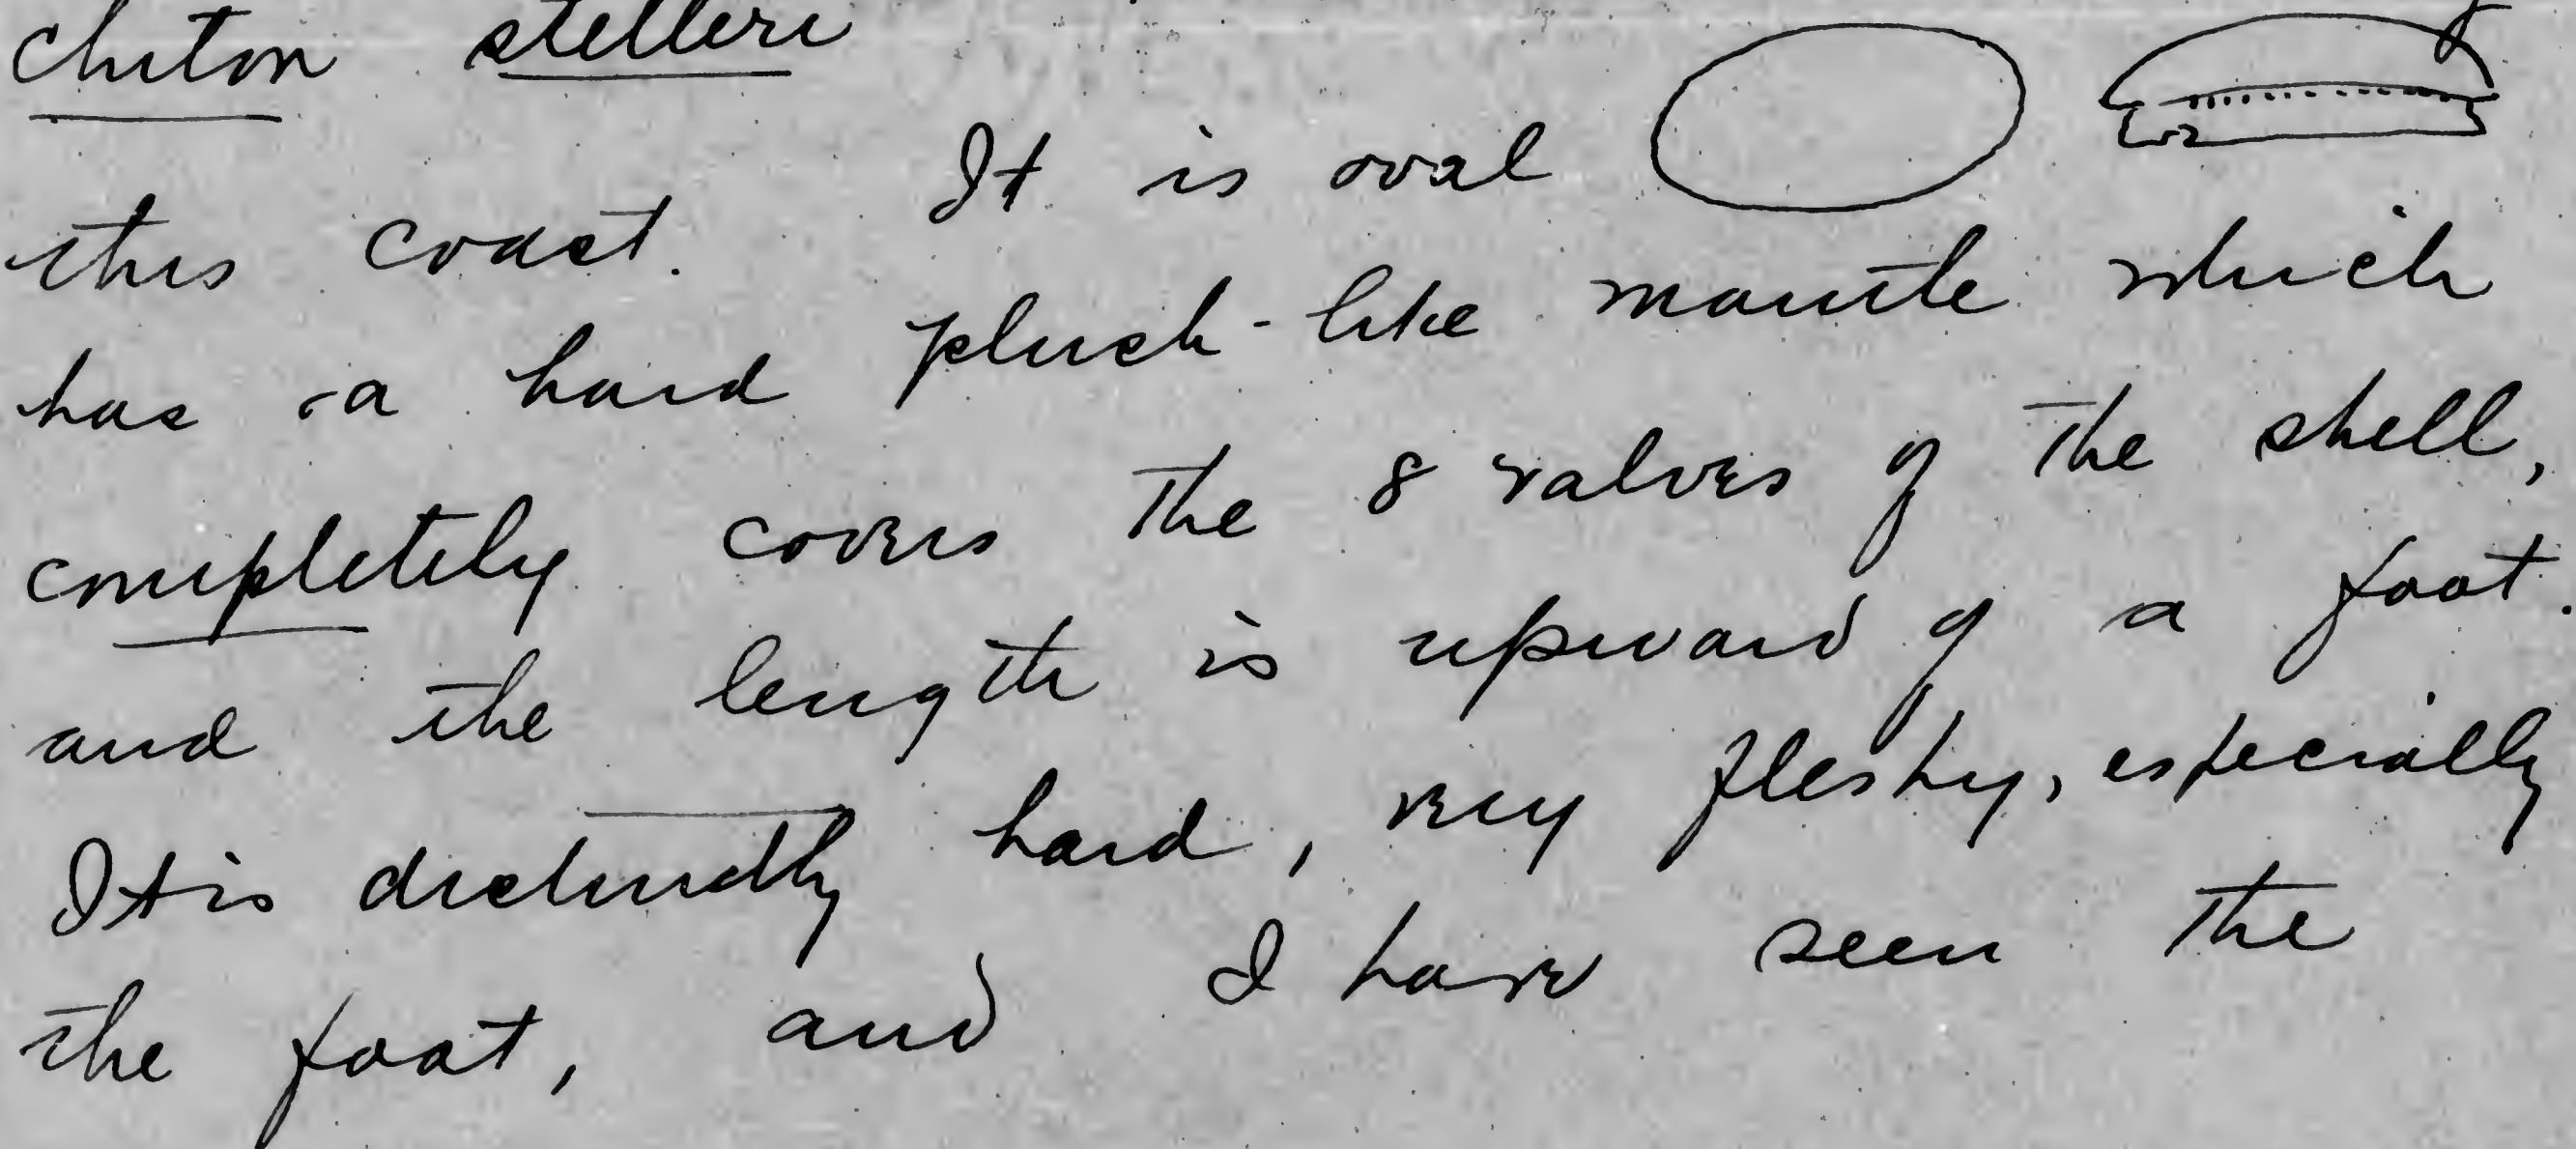 chiton stelleri
this coast. It is oval
has a hard plush-like mantle which
completely covers the 8 valves of the shell,
and the length is upward of a foot.
It is distinctly hard, very fleshy, especially
the foot, and I have seen the